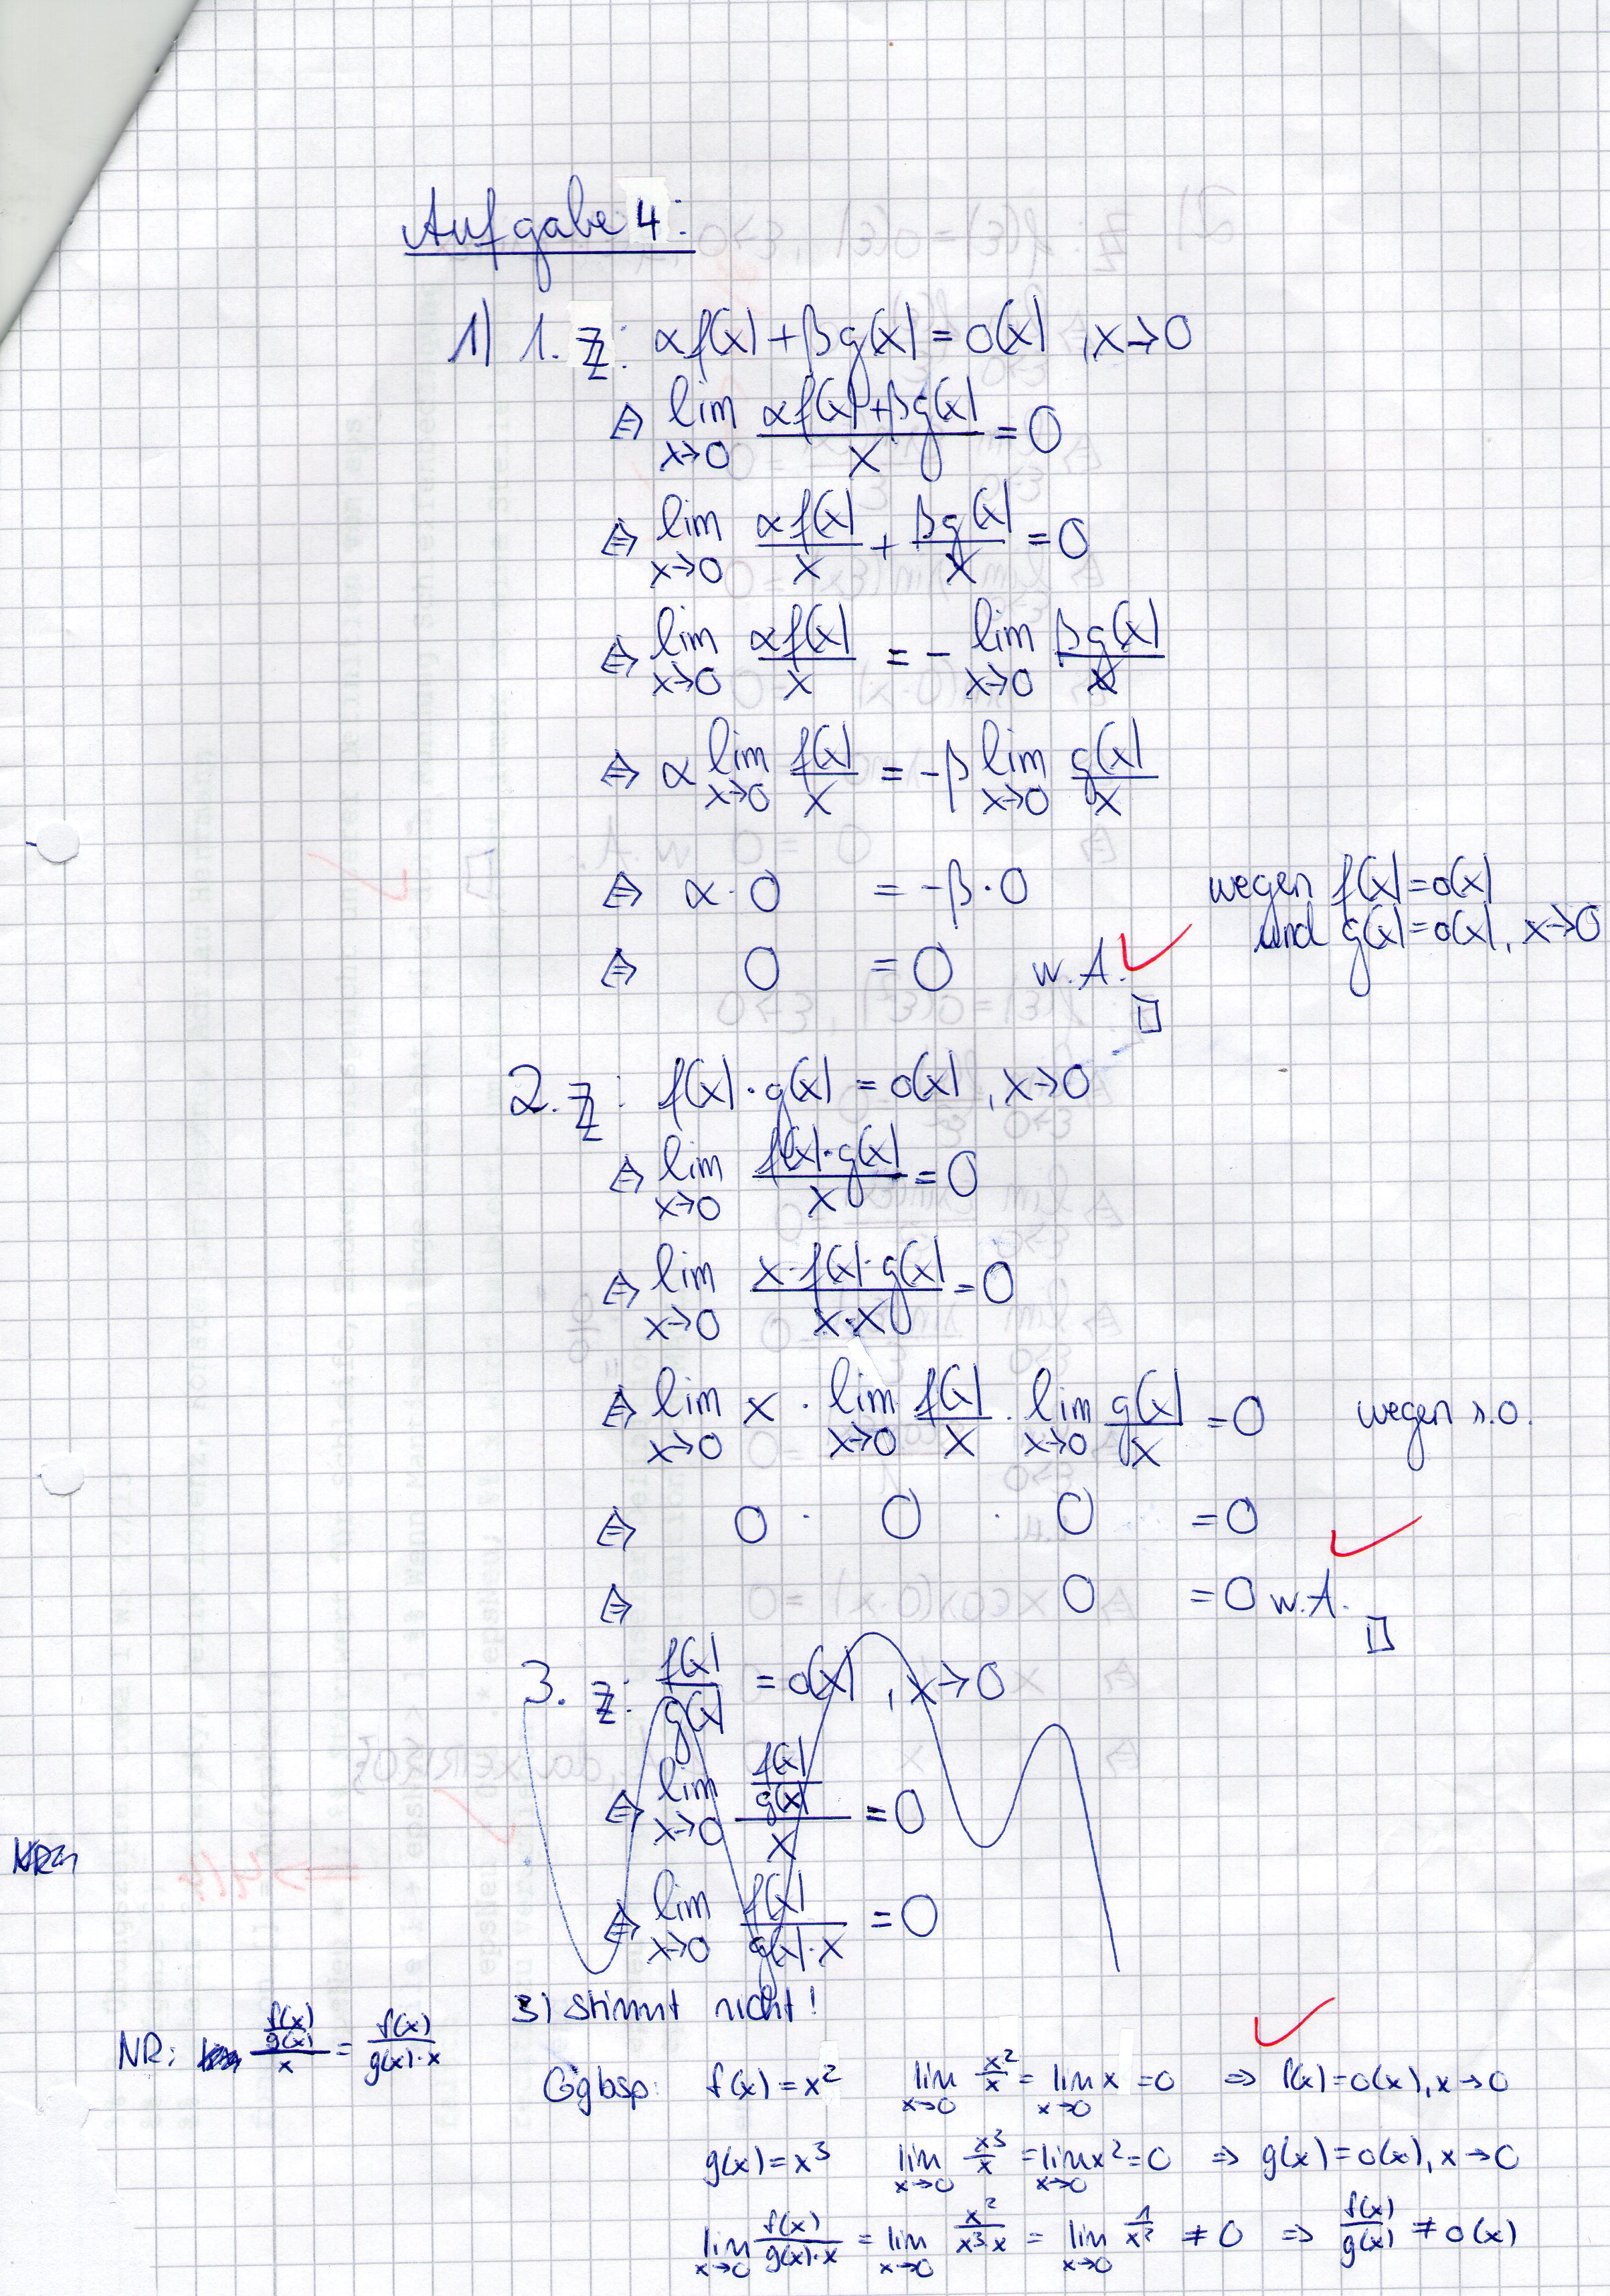 Aufgabe 4:
1) 1. Z: αf(x) + βg(x) = o(x), x→0
⇔ lim x→0 (αf(x)+βg(x))/x = 0
⇔ lim x→0 αf(x)/x + βg(x)/x = 0
⇔ lim x→0 αf(x)/x = - lim x→0 βg(x)/x
⇔ α lim x→0 f(x)/x = -β lim x→0 g(x)/x
⇔ α·0 = -β·0 wegen f(x)=o(x)
und g(x)=o(x), x→0
⇔ 0 = 0 w.A. ✓
□
2. Z: f(x)·g(x) = o(x), x→0
⇔ lim x→0 (f(x)·g(x))/x = 0
⇔ lim x→0 (x·f(x)·g(x))/(x·x) = 0
⇔ lim x→0 x · lim x→0 f(x)/x · lim x→0 g(x)/x = 0 wegen s.o.
⇔ 0 · 0 · 0 = 0 ✓
⇔ 0 = 0 w.A.
□
3. Z: f(x)/g(x) = o(x), x→0
⇔ lim x→0 (f(x)/g(x))/x = 0
⇔ lim x→0 f(x)/(g(x)·x) = 0
3) stimmt nicht! ✓
NR: (f(x)/g(x))/x = f(x)/(g(x)·x)
Ggbsp: f(x) = x² lim x→0 x²/x = lim x→0 x = 0 ⇒ f(x)=o(x), x→0
g(x) = x³ lim x→0 x³/x = lim x→0 x² = 0 ⇒ g(x)=o(x), x→0
lim x→0 f(x)/(g(x)·x) = lim x→0 x²/(x³x) = lim x→0 1/x² ≠ 0 ⇒ f(x)/g(x) ≠ o(x)